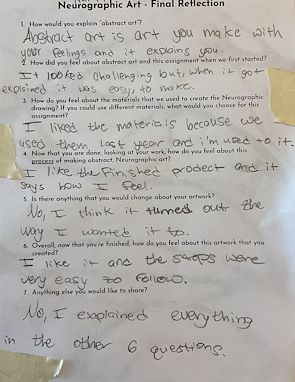 Neurographic Art - Final Reflection
1. How would you explain "abstract art"?
Abstract art is art you make with
your feelings and it explains you.
2. How did you feel about abstract art and this assignment when we first started?
It looked challenging but, when it got
explained it was easy, to make.
3. How do you feel about the materials that we used to create the Neurographic
drawing? If you could use different materials, what would you choose for this
assignment?
I liked the materials because we
used them last year and i'm used to it.
4. Now that you are done, looking at your work, how do you feel about this
process of making abstract, Neurographic art?
I like the finished prodect and it
says how I feel.
5. Is there anything that you would change about your artwork?
No, I think it turned out the
way I wanted it to.
6. Overall, now that you're finished, how do you feel about this artwork that you
created?
I like it and the steps were
very easy to follow.
7. Anything else you would like to share?
No, I explained everything
in the other 6 questions.